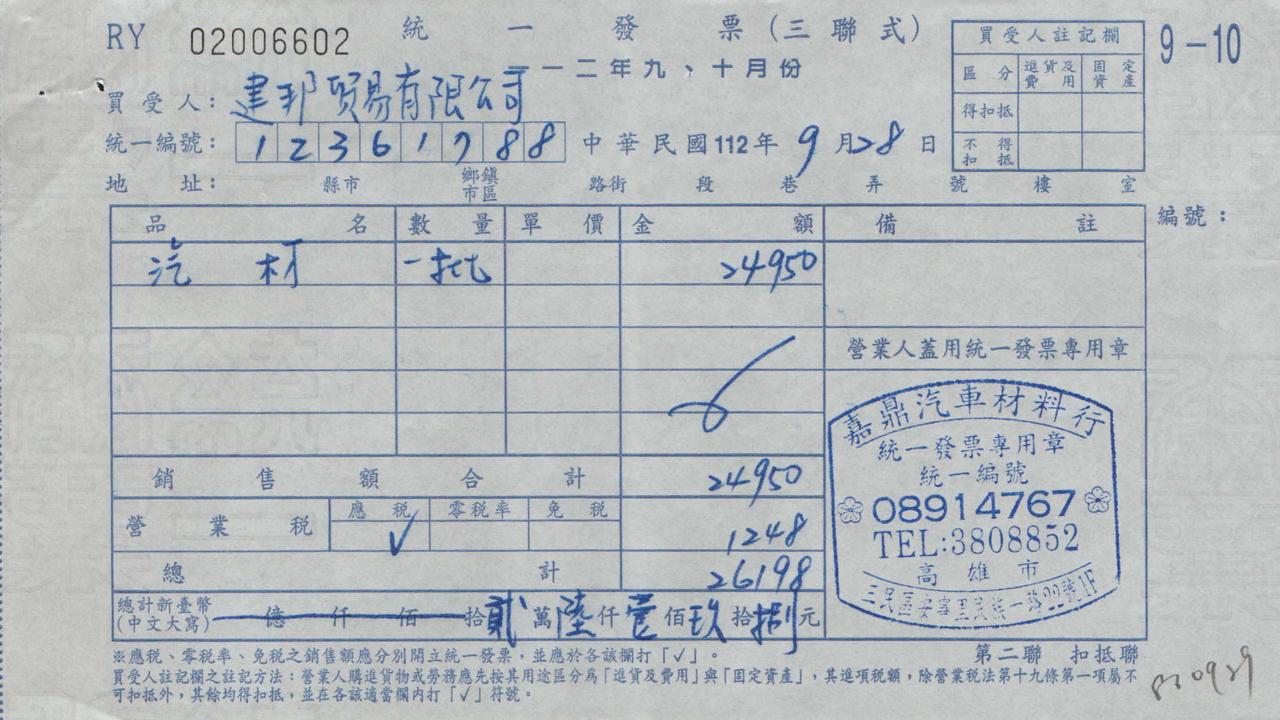 RY 02006602 統一發票(三聯式)
一一二年九、十月份
9-10
買受人註記欄
區分 進貨及費用 固定資產
得扣抵
不得扣抵
買受人:建邦貿易有限公司
統一編號:12361788 中華民國112年9月28日
地址: 縣市 鄉鎮市區 路街 段 巷 弄 號 樓 室
編號:
品名 數量 單價 金額 備註
汽材 一批 24950
營業人蓋用統一發票專用章
銷售額合計 24950
營業稅 應稅 零稅率 免稅
√ 1248
總計 26198
總計新臺幣(中文大寫) 億仟佰拾貳萬陸仟壹佰玖拾捌元
嘉鼎汽車材料行
統一發票專用章
統一編號
08914767
TEL:3808852
高雄市
三民區安寧里民族一路22號1F
※應稅、零稅率、免稅之銷售額應分別開立統一發票,並應於各該欄打「√」。
第二聯 扣抵聯
買受人註記欄之註記方法:營業人購進貨物或勞務應先按其用途區分為「進貨及費用」與「固定資產」,其進項稅額,除營業稅法第十九條第一項屬不
可扣抵外,其餘均得扣抵,並在各該適當欄內打「√」符號。